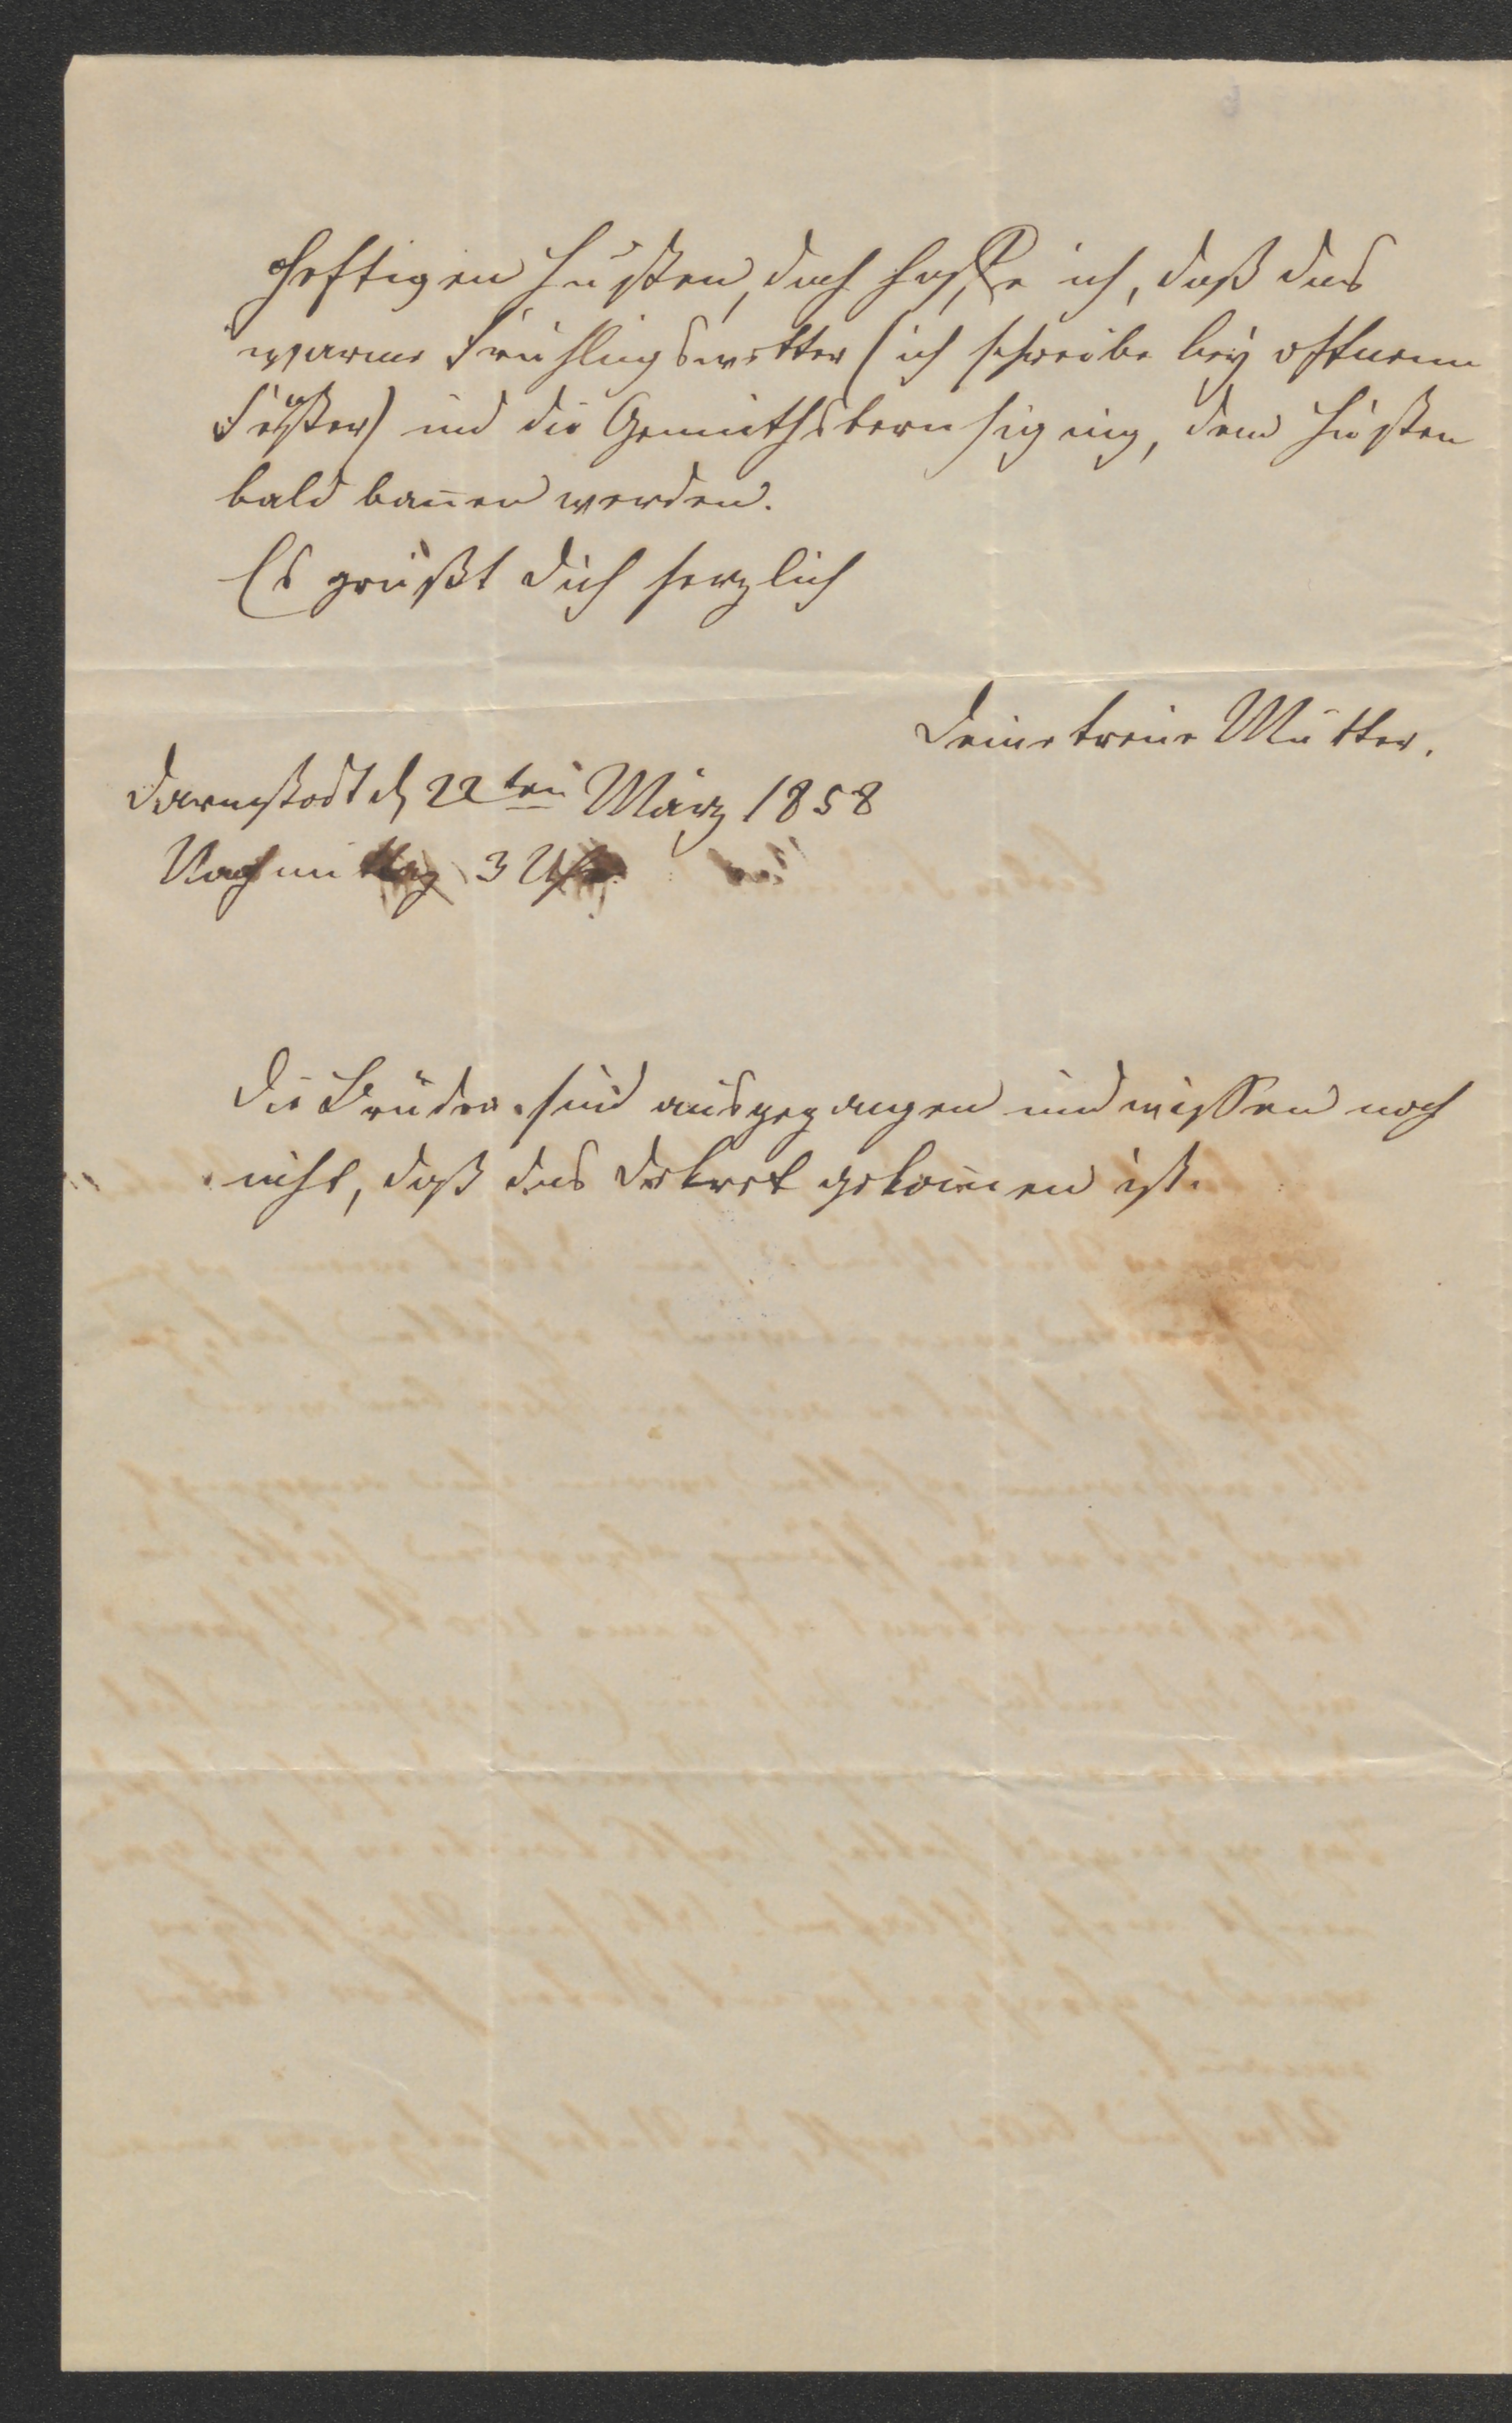 heftigen Husten, doch hoffe ich, daß das
warme Frühlingswetter (ich schreibe bey offnem
Fenster) und die Gemüthsberuhigung, dem Husten
bald bannen werden.
Es grüßt Dich herzlich
Deine treue Mutter.
Darmstadt d 22ten März 1858
Nachmittag 3 Uhr
Die Brüder sind ausgegangen und wissen noch
nicht, daß das Dekret gekommen ist.